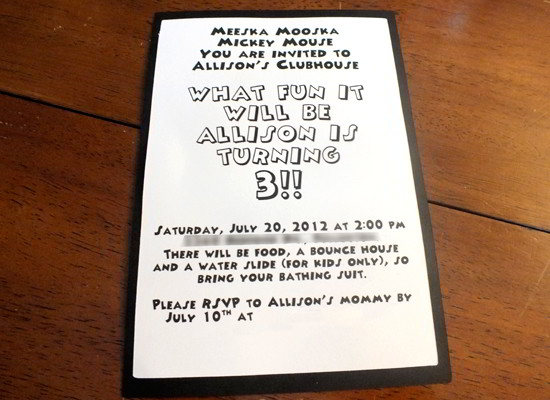 Meeska Mooska
Mickey Mouse
You are invited to
Allison's Clubhouse
What fun it
will be
Allison is
turning
3!!
Saturday, July 20, 2012 at 2:00 pm
There will be food, a bounce house
and a water slide (for kids only), so
bring your bathing suit.
Please RSVP to Allison's mommy by
July 10th at